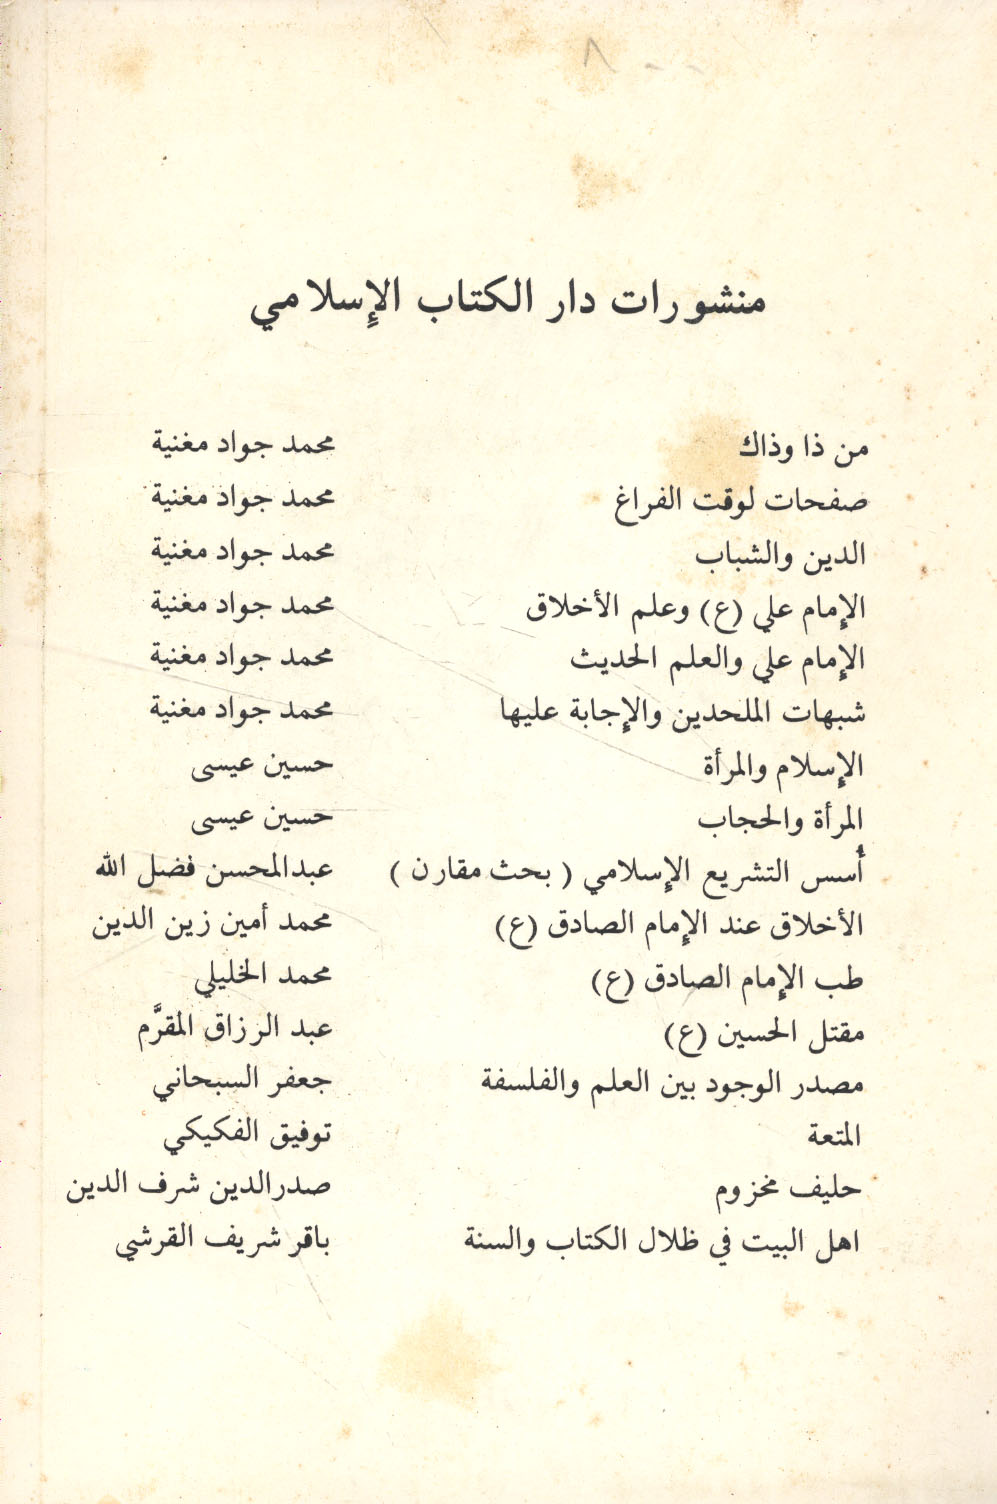 منشورات دار الكتاب الإسلامي
من ذا وذاك محمد جواد مغنية
صفحات لوقت الفراغ محمد جواد مغنية
الدين والشباب محمد جواد مغنية
الإمام علي (ع) وعلم الأخلاق محمد جواد مغنية
الإمام علي والعلم الحديث محمد جواد مغنية
شبهات الملحدين والإجابة عليها محمد جواد مغنية
الإسلام والمرأة حسين عيسى
المرأة والحجاب حسين عيسى
أُسس التشريع الإسلامي ( بحث مقارن ) عبدالمحسن فضل الله
الأخلاق عند الإمام الصادق (ع) محمد أمين زين الدين
طب الإمام الصادق (ع) محمد الخليلي
مقتل الحسين (ع) عبد الرزاق المقرَّم
مصدر الوجود بين العلم والفلسفة جعفر السبحاني
المتعة توفيق الفكيكي
حليف مخزوم صدرالدين شرف الدين
اهل البيت في ظلال الكتاب والسنة باقر شريف القرشي